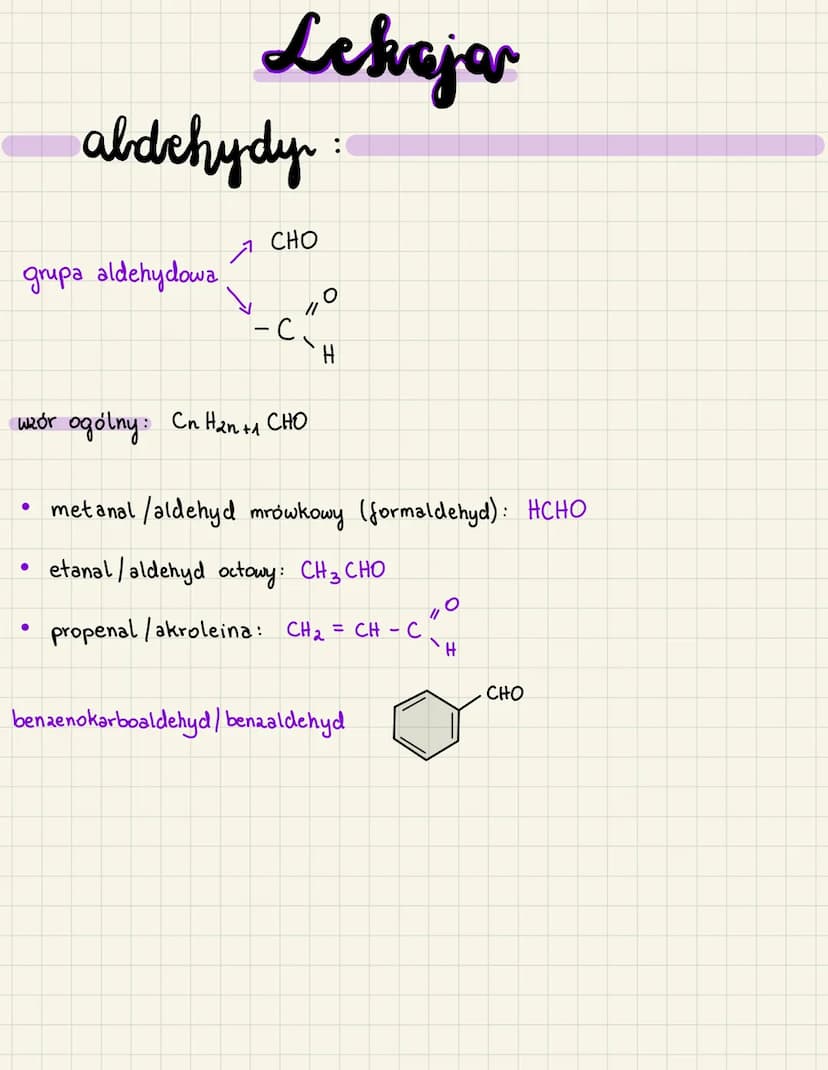 aldehydy :
CHO
grupa aldehydowa
O
- C
H
wzór ogólny: CnH2n+1 CHO
• metanal/aldehyd mrówkowy (formaldehyd): HCHO
• etanal/aldehyd octowy: CH3CHO
O
• propenal/akroleina: CH2 = CH - C
H
CHO
benzenokarboaldehyd/benzaldehyd